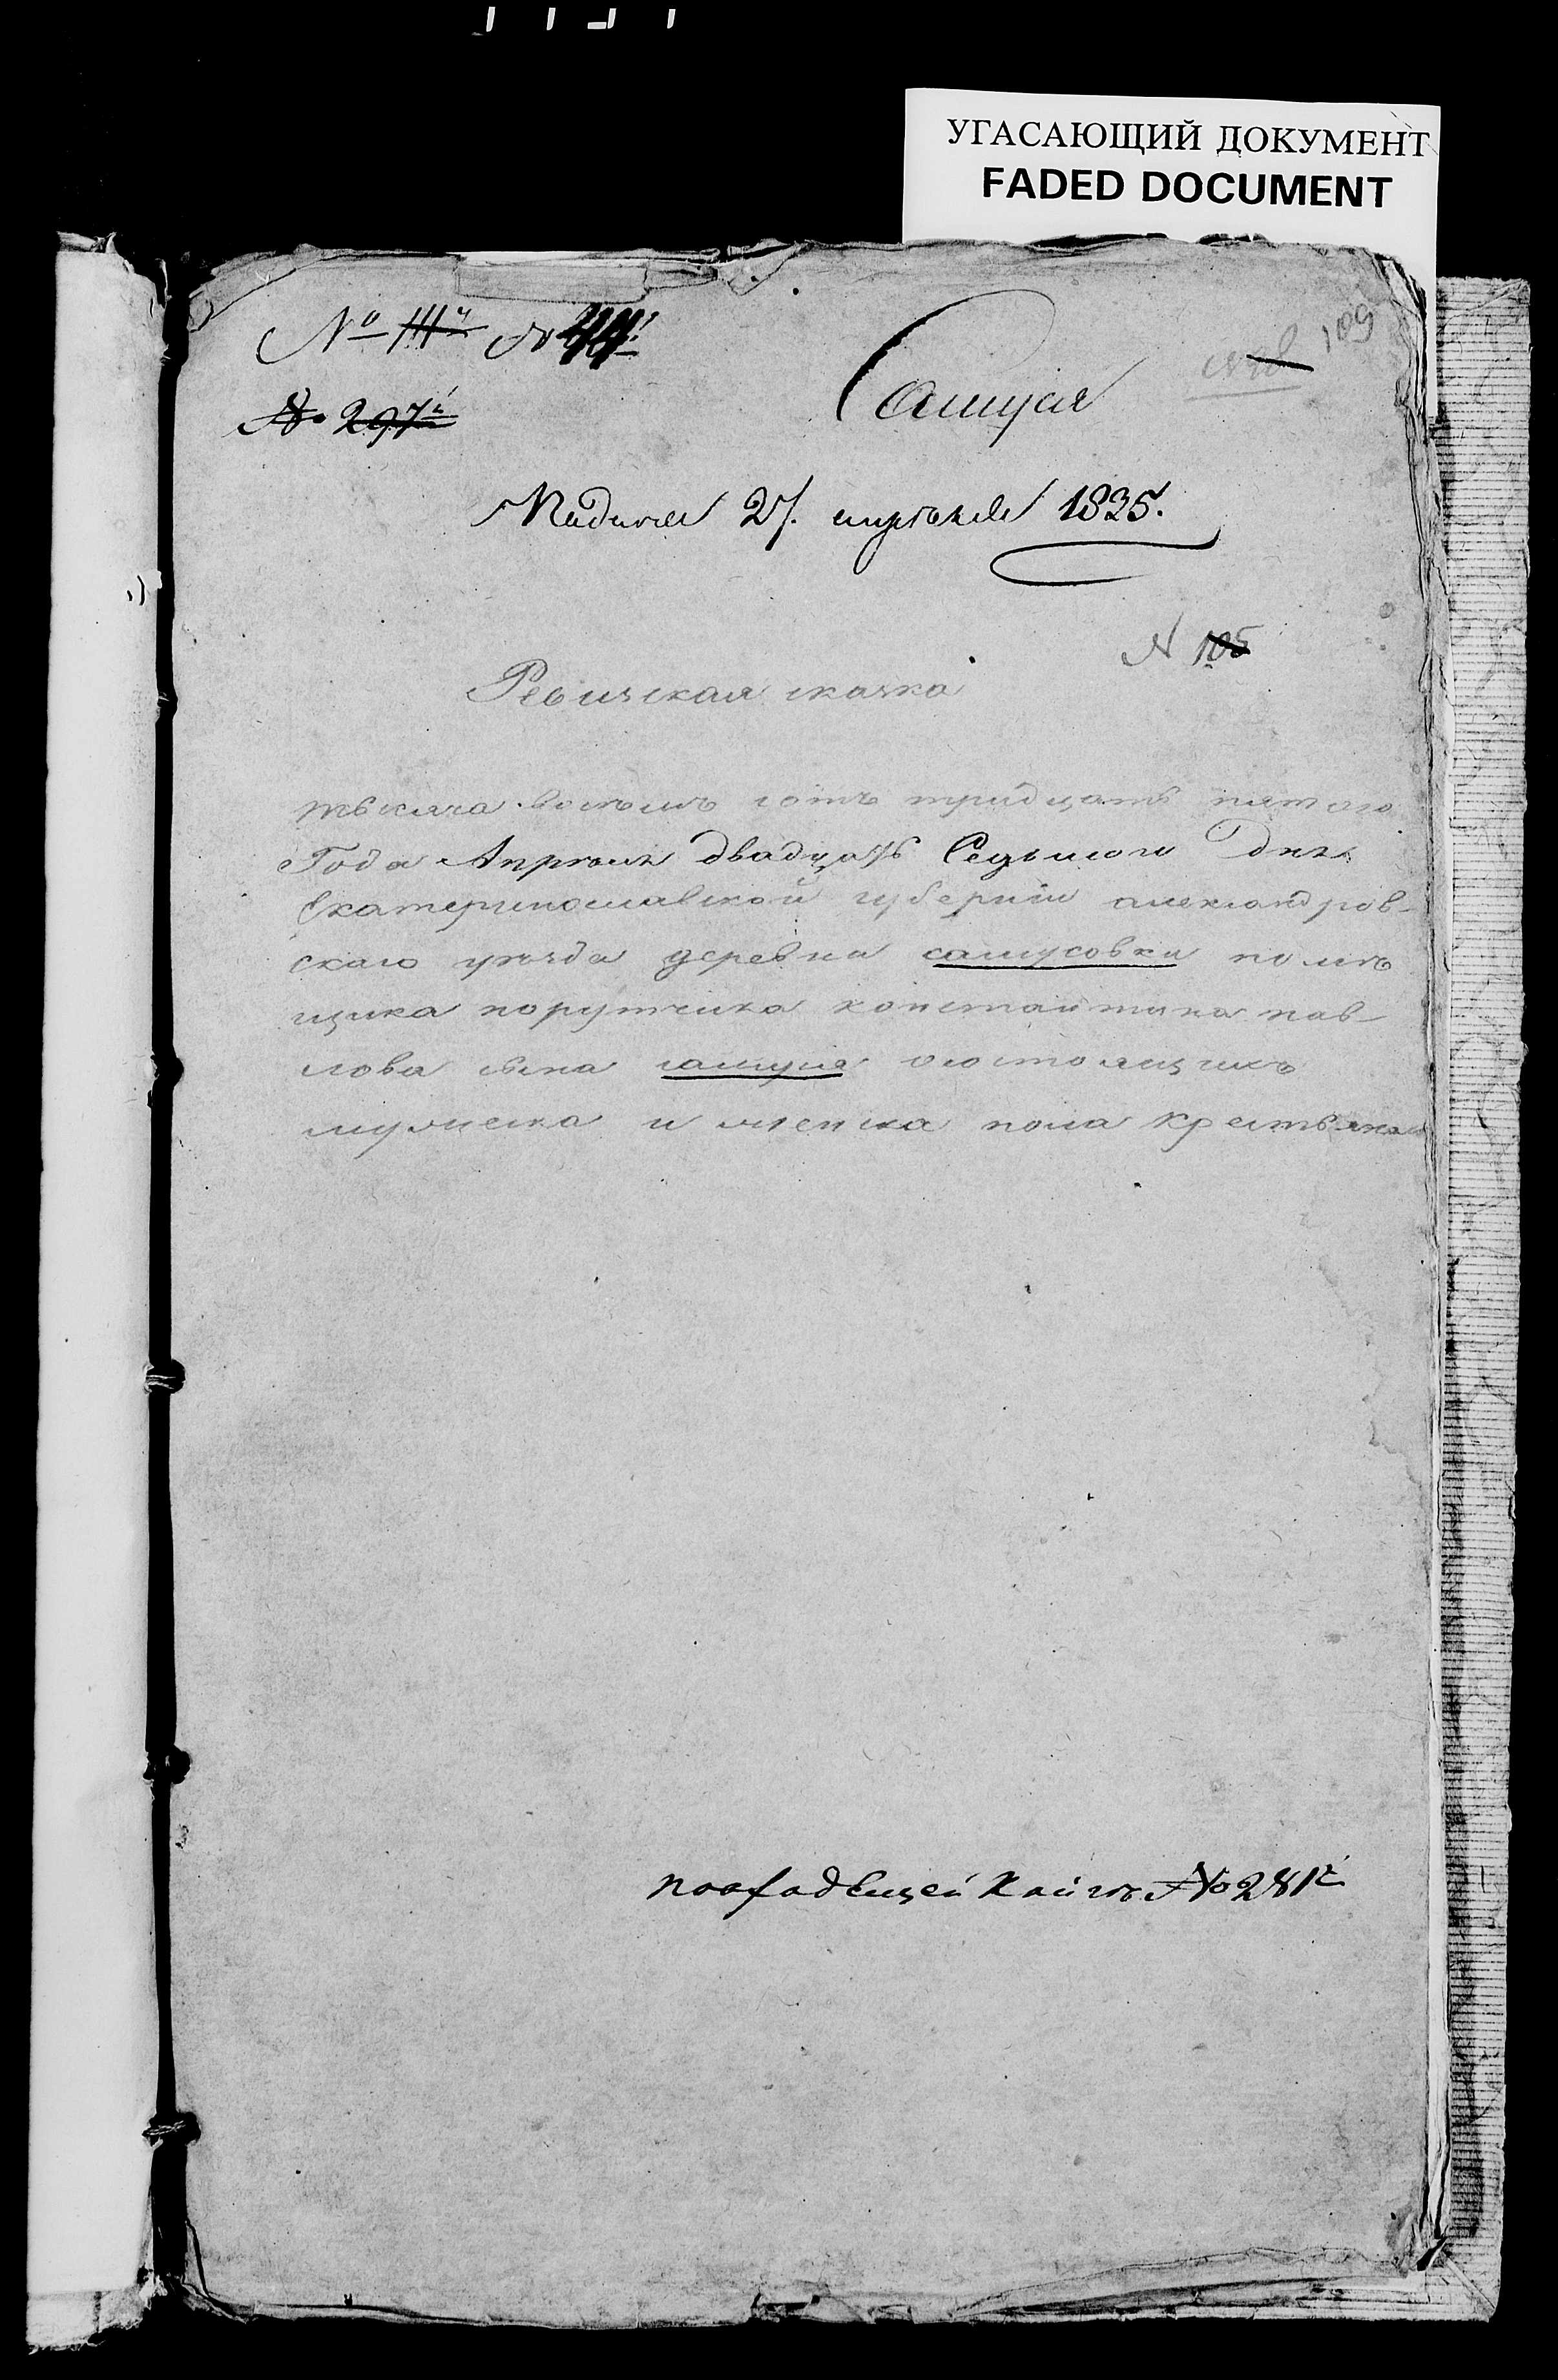 УГАСАЮЩИЙ ДОКУМЕНТ
FADED DOCUMENT
109
№ 111й № 44й
№ 297й
Самуся
Подана 27. апреля 1835.
N 105
Ревиская скаска
тысяча восемъ сотъ тридцать пятого
Года Апреля двадцать Седьмого Дня
Екатеринославской губернии александров-
скаго уезда деревни самусовки поме
щика порутчика константина пав
лова сына самуся о состоящихъ
мужеска и женска пола крестьянах
Книге № 281й